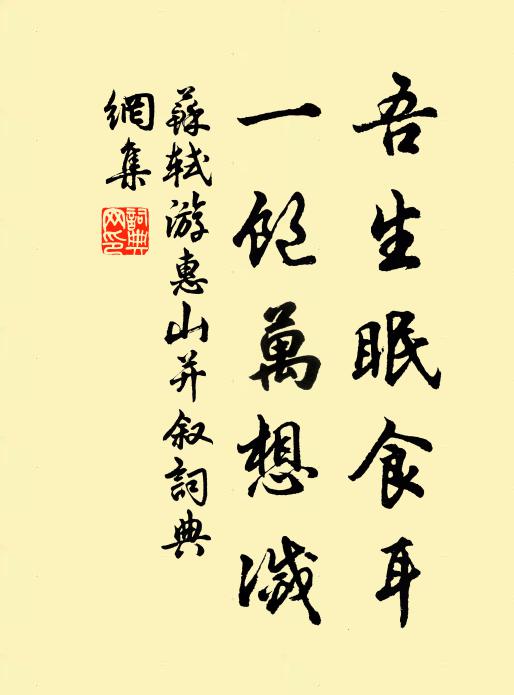 吾生眠食耳
一飽萬想滅
蘇軾游惠山并叙詞典
網集
詞典網印